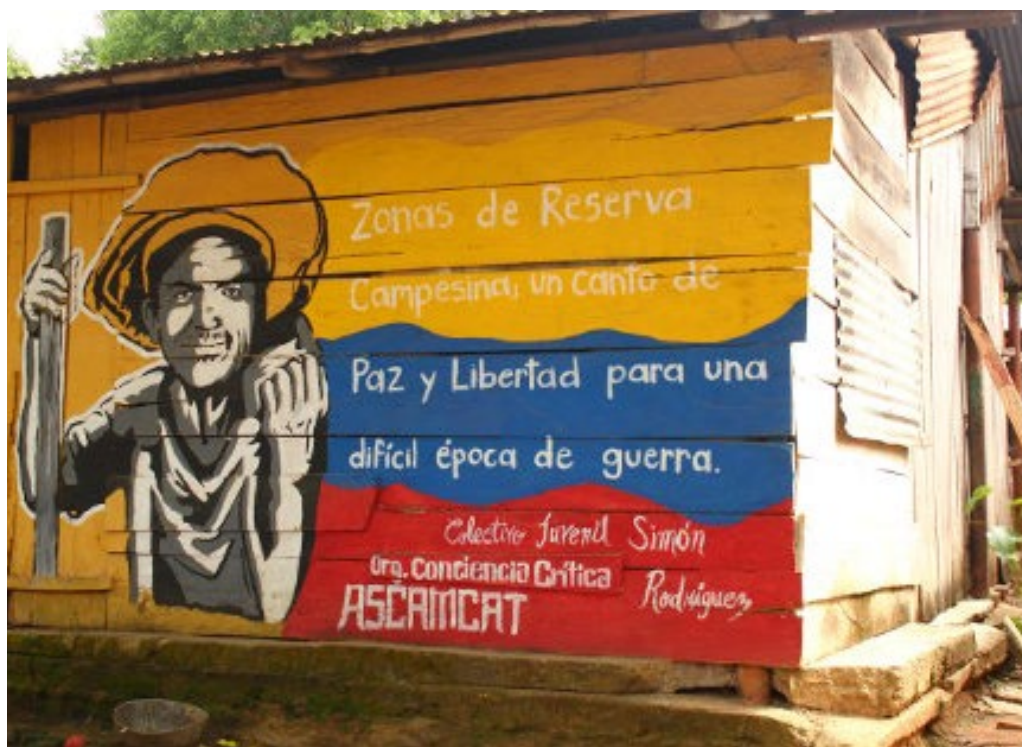 Zonas de Reserva
Campesina, un canto de
Paz y Libertad para una
difícil época de guerra.
Colectivo Juvenil Simón
Rodríguez
Org. Conciencia Crítica
ASCAMCAT